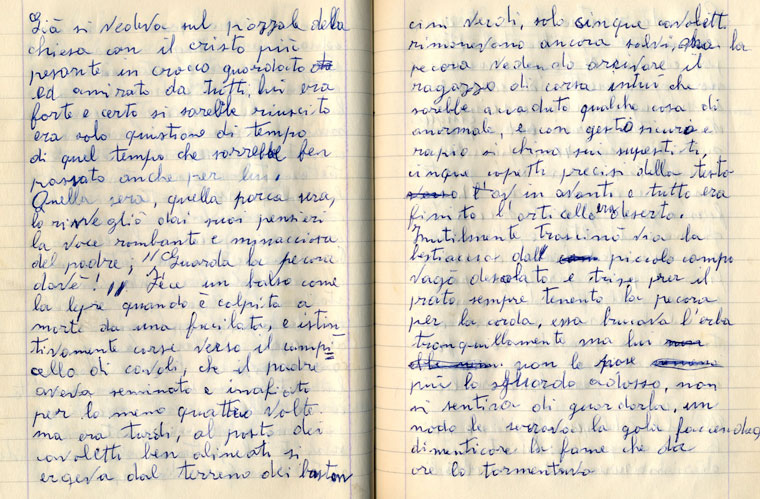 Già si vedeva sul piazzale della
chiesa con il cristo più
pesante in crocco guardato
ed amirato da tutti, lui era
forte e certo si sarebbe riuscito
era solo questione di tempo
di quel tempo che sarrebbe ben
passato anche per lui.
Quella sera, quella porca sera,
lo risvegliò dai suoi pensieri
la voce rombante e mynacciosa
del padre; "Guarda la pecora
dove!" Fece un balso come
la lepre quando è colpita a
morte da una fucilata, e istin
tivamente corse verso il campi
cello di cavoli, che il padre
aveva seminato e inafiato
per lo meno quattro volte.
ma era tardi, al posto dei
cavoletti ben alineati si
ergeva dal terreno dei baston
cini verdi, solo cinque cavoletti
rimanevano ancora salvi, ma la
pecora vedendo arrivare il
ragazzo di corsa intuì che
sarebbe accaduto qualche cosa di
anormale, e con gesto sicuro e
rapio si chino sui supestiti,
cinque colpetti precisi della testa
in avanti e tutto era
finito l'orticello era deserto.
Inutilmente trascinò via la
bestiaccia dall piccolo campo
vagò desolato e triste per il
prato sempre tenento la pecora
per la corda, essa brucava l'erba
tranquillamente ma lui
non le pose
più lo sguardo adosso, non
si sentiva di guardarla, un
nodo le serrava la gola facendog
dimenticare la fame che da
ore lo tormentava